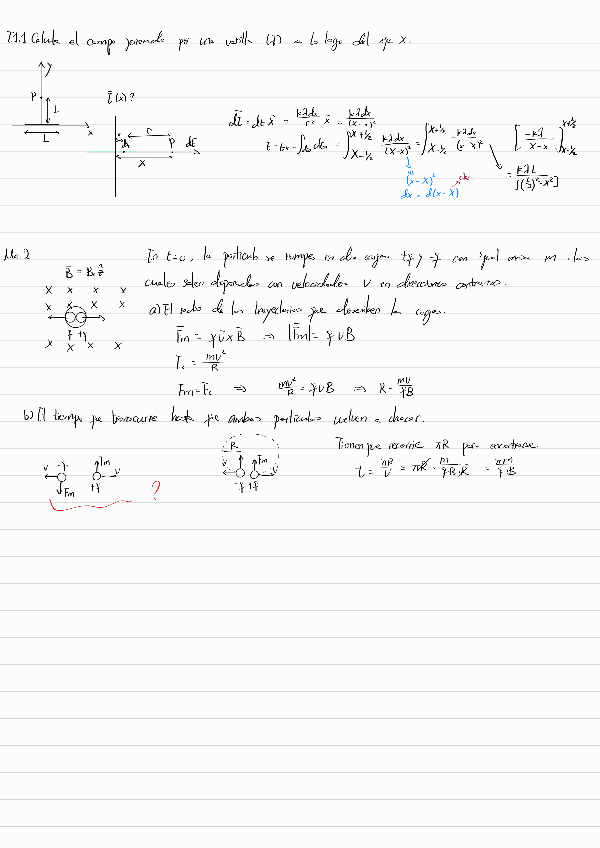 7.1.1 Calcula el campo generado por una varilla (λ) a lo largo del eje x.
y
P
L
x
L
E(x)?
r
P
dE
x
dE = dE x = kλdx/r² x = kλdx/(x-x)²
E = Ex = ∫ dEx = ∫ kλdx/(x-x)² = ∫ kλdx/(x-x)² [-kλ/x-x]
(x-x)²
dx = d(x-x)
= kλL/[(L/2)²-x²]
B = B ẑ
En t=0, la partícula se rompe en dos cargas +q y -q con igual masa m
cuales salen disparadas con velocidades V en direcciones contrarias.
x x x x
x x x x
-q +q
x x x x
a) El radio de las trayectorias que describen las cargas.
Fm = q v x B ⇒ |Fm| = q v B
Fc = mv²/R
Fm = Fc ⇒ mv²/R = q v B ⇒ R = mv/qB
b) El tiempo que transcurre hasta que ambas partículas vuelven a chocar.
V -q Fm V +q Fm ?
R
V -q +q Fm V
Tienen que recorrer πR para encontrarse.
t = πR/V = πR · m/qBR = πm/qB